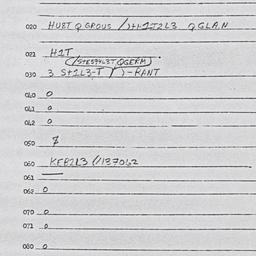 020 HUST Q GROUS /)++1J2L3 Q GLAN
021 H1T
(/STES++L3T QGERM)
030 3 S+1L3-T / )-RANT
040 0
041 0
042 0
050
060 KEB2L3 (/137062
061
062 0
070 0
071 0
080 0